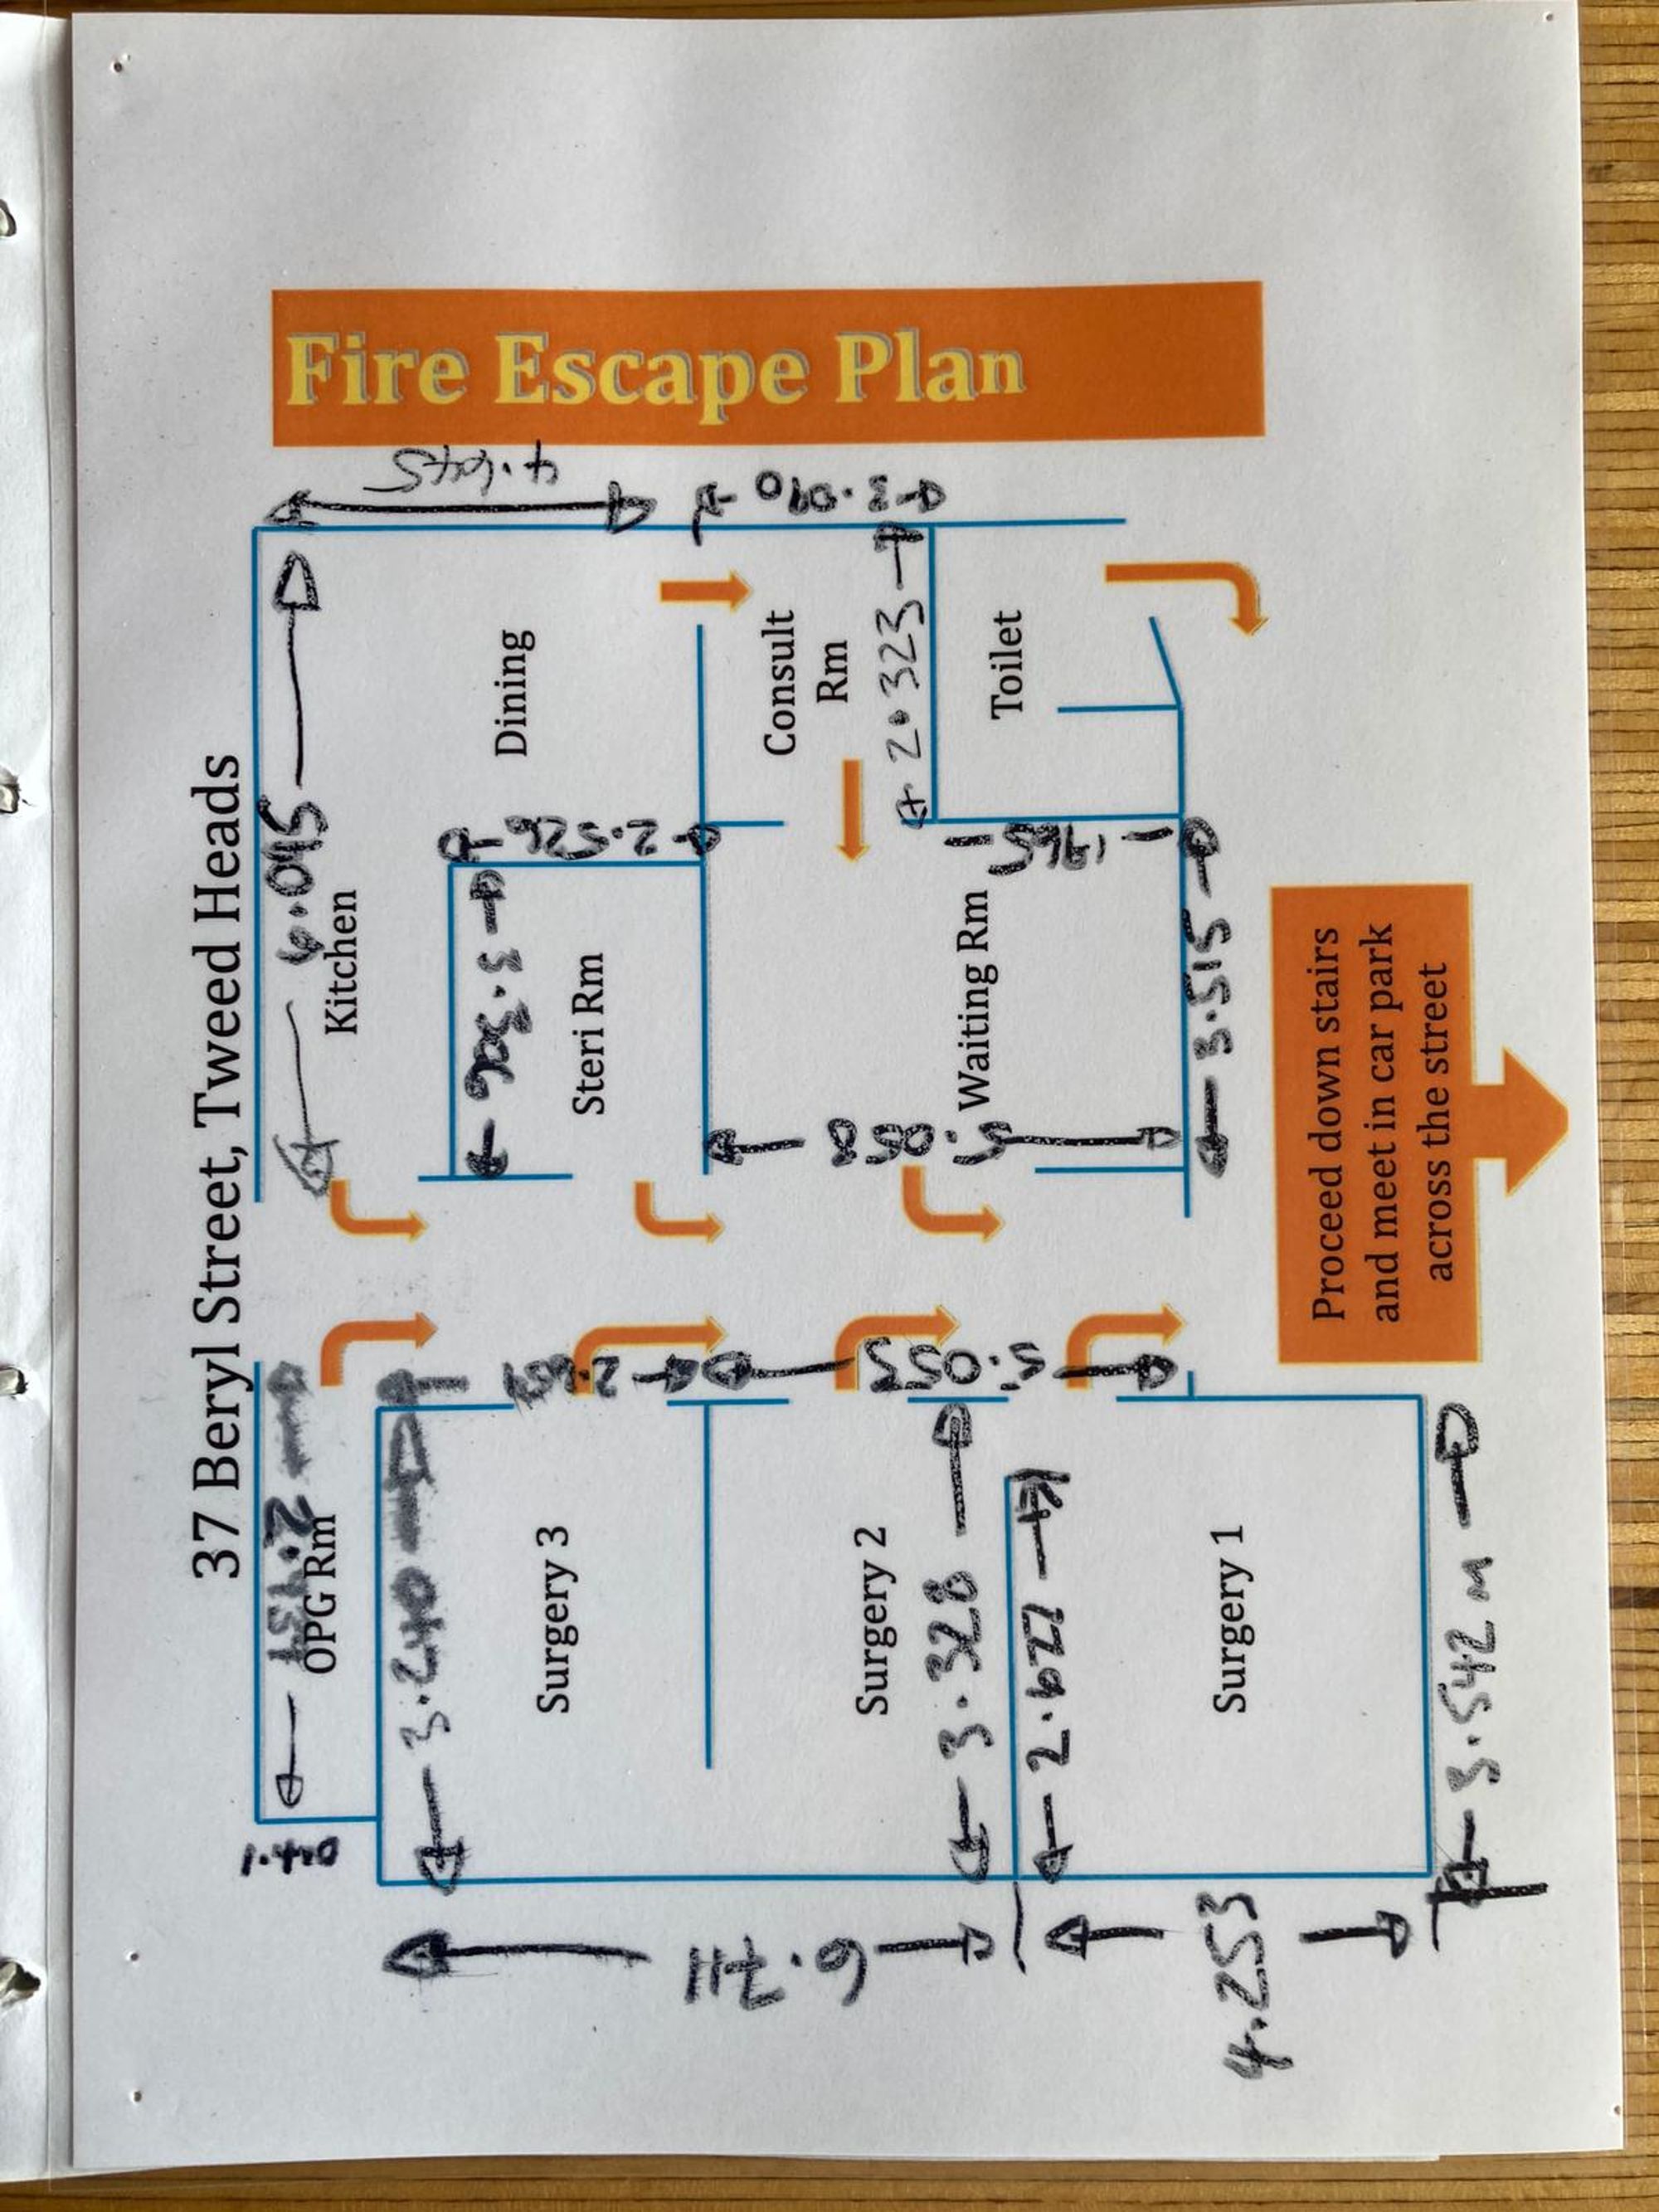 Fire Escape Plan
37 Beryl Street, Tweed Heads
OPG Rm
Kitchen
6.045
1.440
3.240
Surgery 3
Steri Rm
3.306
2.526
Dining
4.645
6.711
Surgery 2
3.328
5.055
Waiting Rm
5.058
Consult
Rm
3.090
2.323
2.677
4.253
Surgery 1
1.965
Toilet
3.515
3.542 m
Proceed down stairs
and meet in car park
across the street